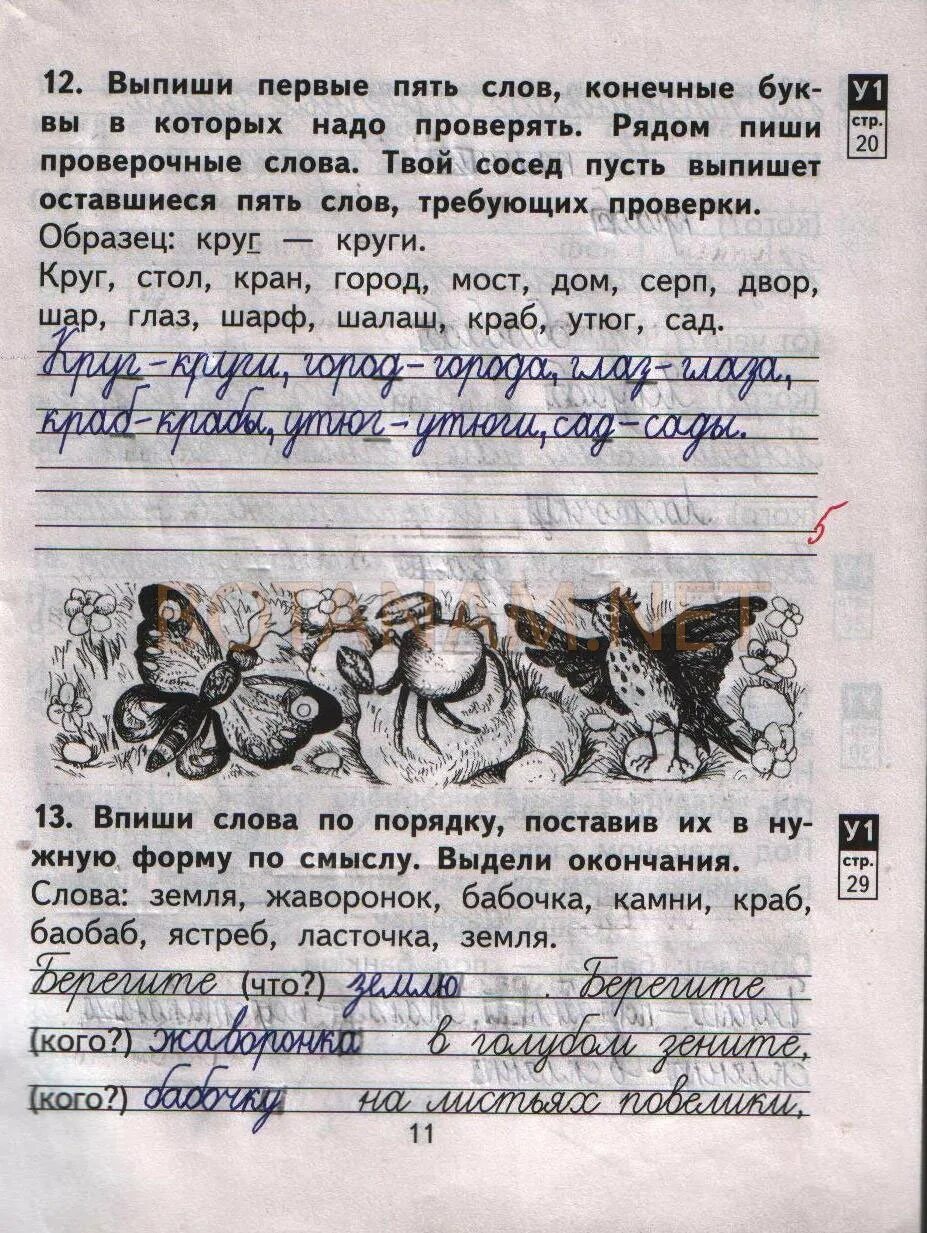 12. Выпиши первые пять слов, конечные бук-
вы в которых надо проверять. Рядом пиши
проверочные слова. Твой сосед пусть выпишет
оставшиеся пять слов, требующих проверки.
Образец: круг — круги.
Круг, стол, кран, город, мост, дом, серп, двор,
шар, глаз, шарф, шалаш, краб, утюг, сад.
У1
стр.
20
Круг-круги, город-города, глаз-глаза,
краб-крабы, утюг-утюги, сад-сады.
5
BOTANAM.NET
13. Впиши слова по порядку, поставив их в ну-
жную форму по смыслу. Выдели окончания.
Слова: земля, жаворонок, бабочка, камни, краб,
баобаб, ястреб, ласточка, земля.
У1
стр.
29
Берегите (что?) землю . Берегите
(кого?) жаворонка в голубом зените,
(кого?) бабочку на листьях повелики,
11